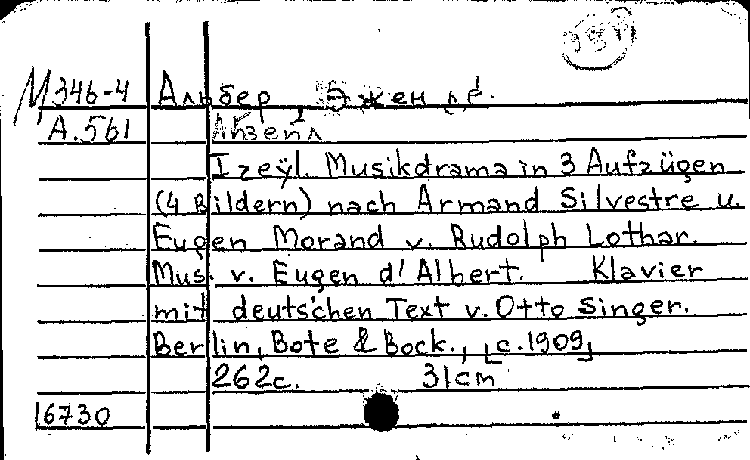 М346-4 Альбер, Эжен д'.
А.561 Айзейл
Izeÿl. Musikdrama in 3 Aufzügen
(4 Bildern) nach Armand Silvestre u.
Eugen Morand v. Rudolph Lothar.
Mus. v. Eugen d'Albert. Klavier
mit deutschen Text v. Otto Singer.
Berlin, Bote & Bock., [c.1909]
262с. 31cm
16730